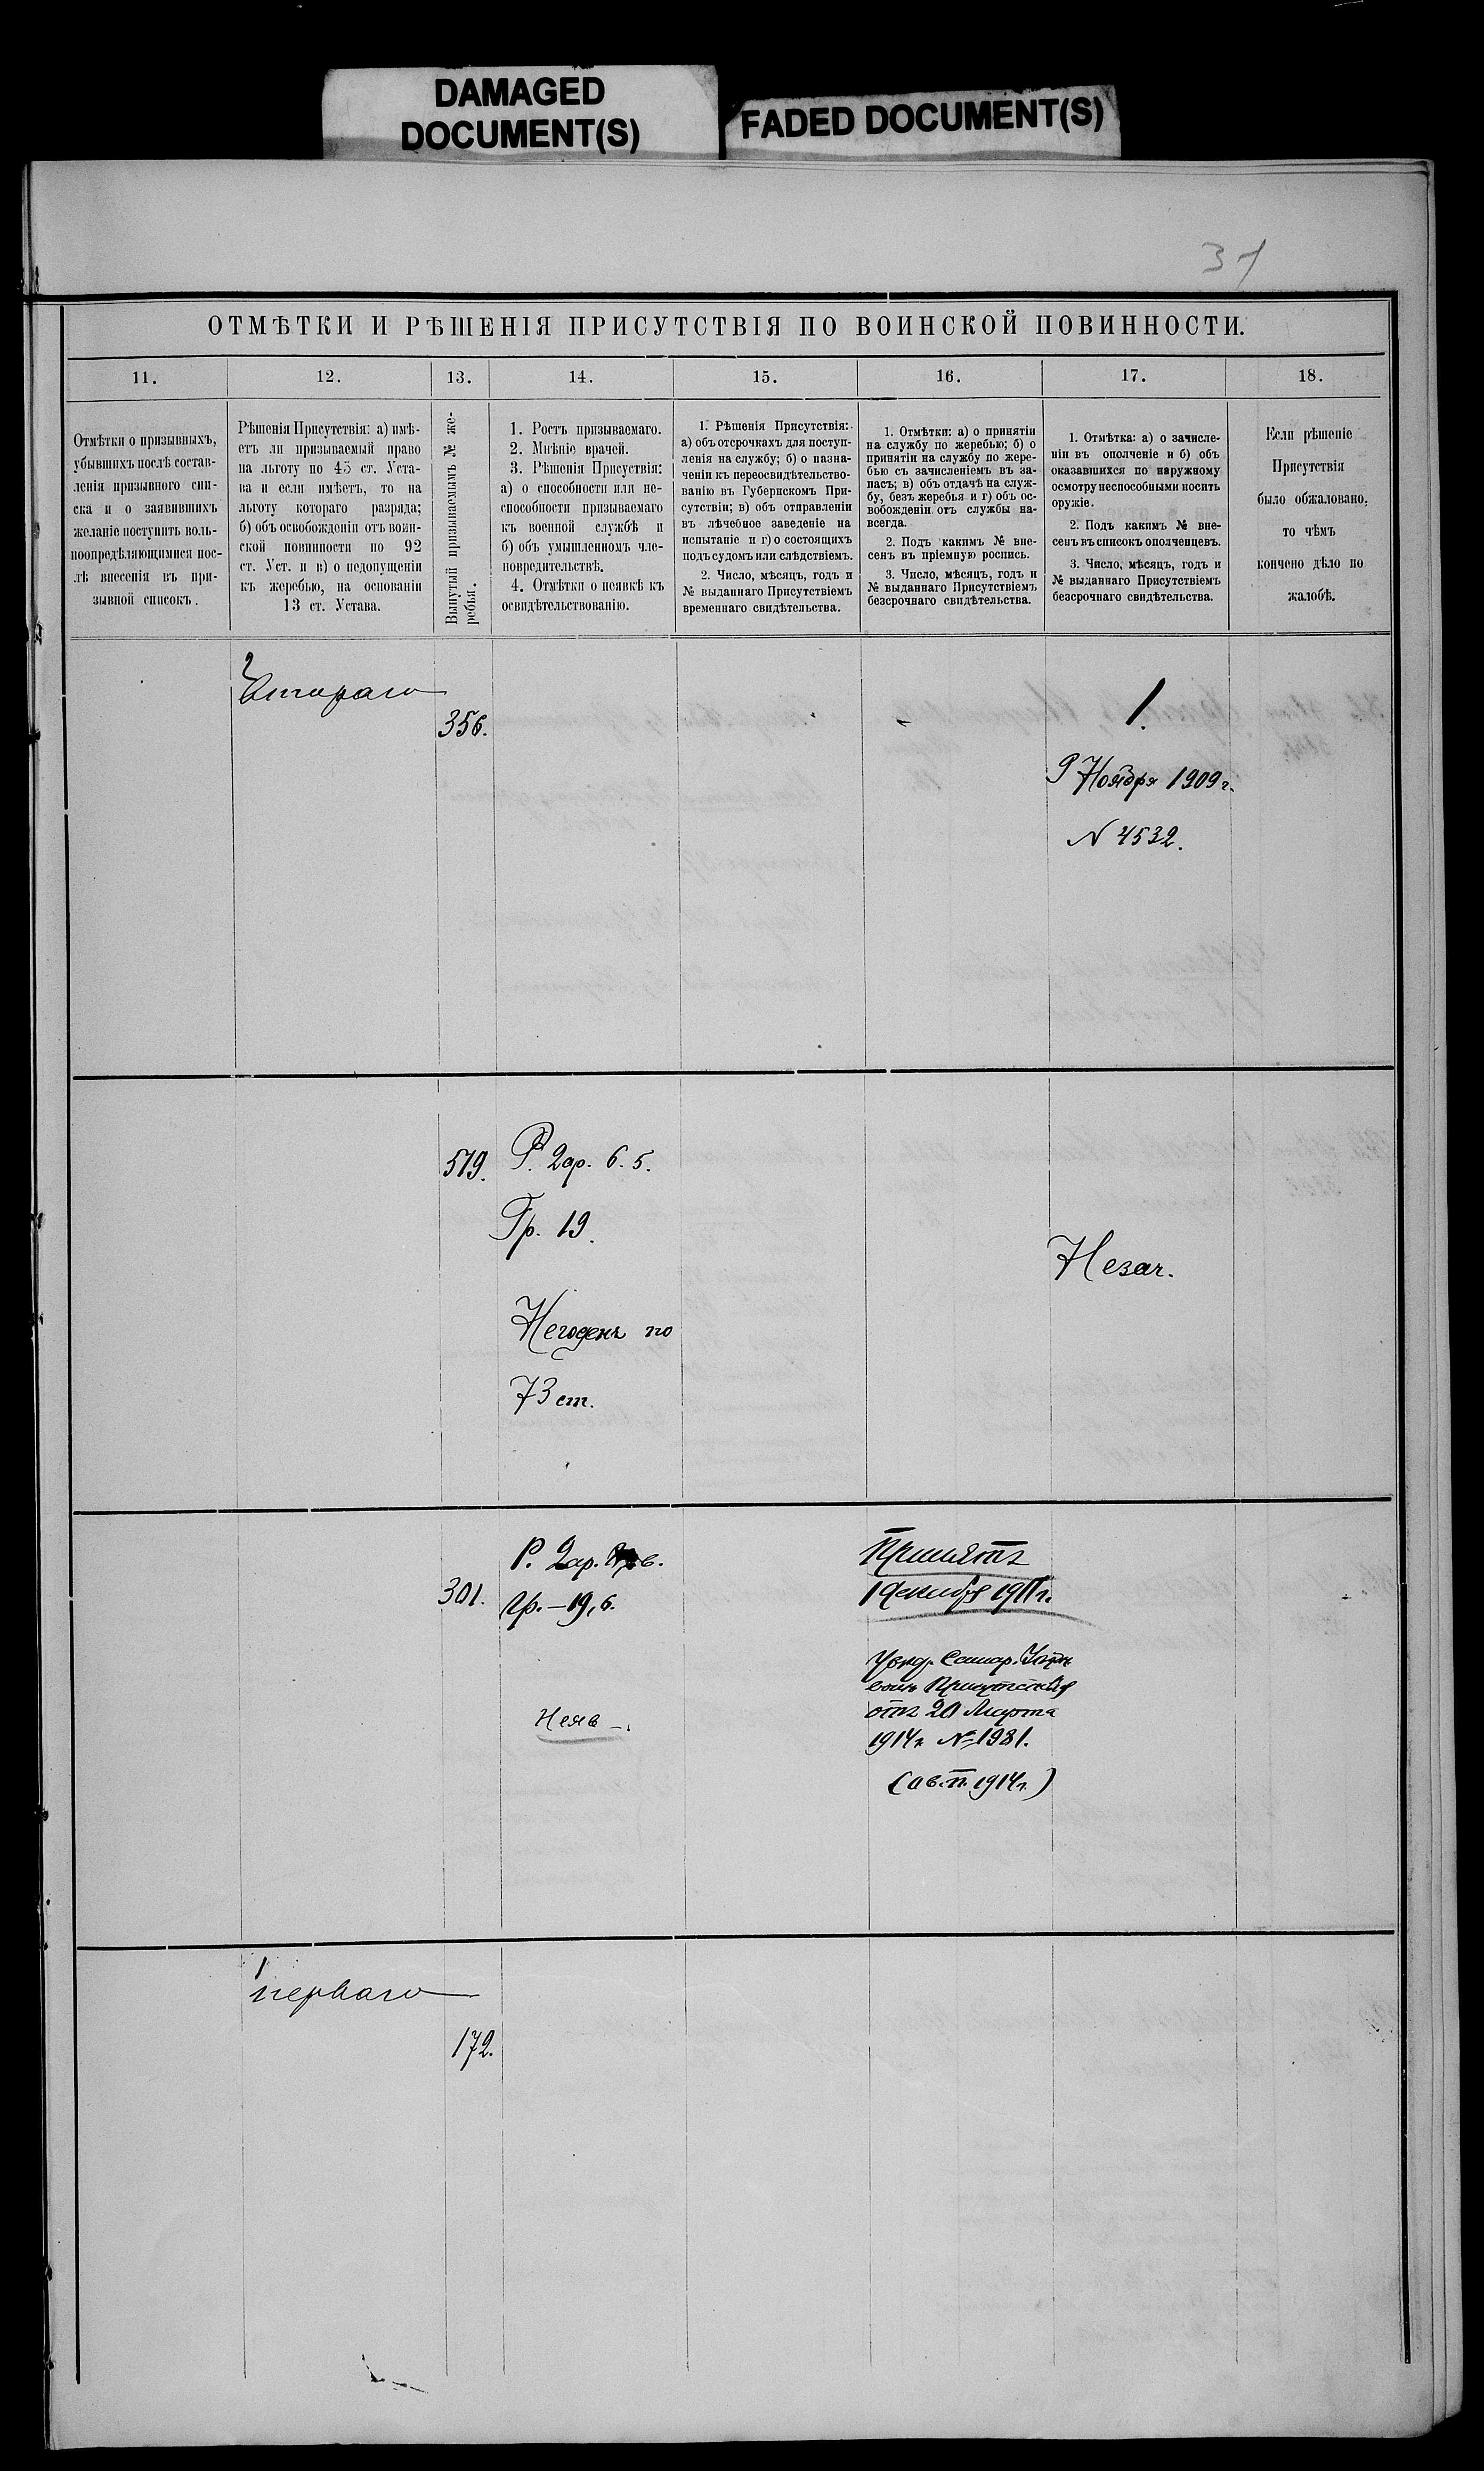 DAMAGED
DOCUMENT(S)
FADED DOCUMENT(S)
ОТМѢТКИ И РѢШЕНІЯ ПРИСУТСТВІЯ ПО ВОИНСКОЙ ПОВИННОСТИ.
11.
12.
13.
14.
15.
16.
17.
18.
Отмѣтки о призывныхъ,
убывшихъ послѣ состав-
ленія призывного спи-
ска и о заявившихъ
желаніе поступить воль-
ноопредѣляющимися пос-
лѣ внесенія въ при-
зывной списокъ.
Рѣшенія Присутствія: а) имѣ-
етъ ли призываемый право
на льготу по 45 ст. Уста-
ва и если имѣетъ, то на
льготу котораго разряда;
б) объ освобожденіи отъ воин-
ской повинности по 92
ст. Уст. и в) о недопущеніи
къ жеребью, на основаніи
13 ст. Устава.
Вынутый призываемымъ № же-
ребья.
1. Ростъ призываемаго.
2. Мнѣніе врачей.
3. Рѣшенія Присутствія:
а) о способности или не-
способности призываемаго
къ военной службѣ и
б) объ умышленномъ чле-
новредительствѣ.
4. Отмѣтки о неявкѣ къ
освидѣтельствованію.
1. Рѣшенія Присутствія:
а) объ отсрочкахъ для поступ-
ленія на службу; б) о назна-
ченіи къ переосвидѣтельство-
ванію въ Губернскомъ При-
сутствіи; в) объ отправленіи
въ лѣчебное заведеніе на
испытаніе и г) о состоящихъ
подъ судомъ или слѣдствіемъ.
2. Число, мѣсяцъ, годъ и
№ выданнаго Присутствіемъ
временнаго свидѣтельства.
1. Отмѣтки: а) о принятіи
на службу по жеребью; б) о
принятіи на службу по жере-
бью съ зачисленіемъ въ за-
пасъ; в) объ отдачѣ на служ-
бу, безъ жеребья и г) объ ос-
вобожденіи отъ службы на-
всегда.
2. Подъ какимъ № вне-
сенъ въ пріемную роспись.
3. Число, мѣсяцъ, годъ и
№ выданнаго Присутствіемъ
безсрочнаго свидѣтельства.
1. Отмѣтка: а) о зачисле-
ніи въ ополченіе и б) объ
оказавшихся по наружному
осмотру неспособными носить
оружіе.
2. Подъ какимъ № вне-
сенъ въ списокъ ополченцевъ.
3. Число, мѣсяцъ, годъ и
№ выданнаго Присутствіемъ
безсрочнаго свидѣтельства.
Если рѣшеніе
Присутствія
было обжаловано,
то чѣмъ
кончено дѣло по
жалобѣ.
2
Втораго
356.
1.
9 Ноября 1909 г.
N 4532.
519.
Р. 2ар. 6.5.
Гр. 19.
Негоденъ по
73 ст.
Незач.
301.
Р. 2ар. 6 в.
Гр. - 19,6.
Неяв -.
Принятъ
1 декабря 1911 г.
Увѣд. Самар. Уѣзд
воин Присутствія
отъ 20 Марта
1914 г. № 1981.
1
перваго
172.